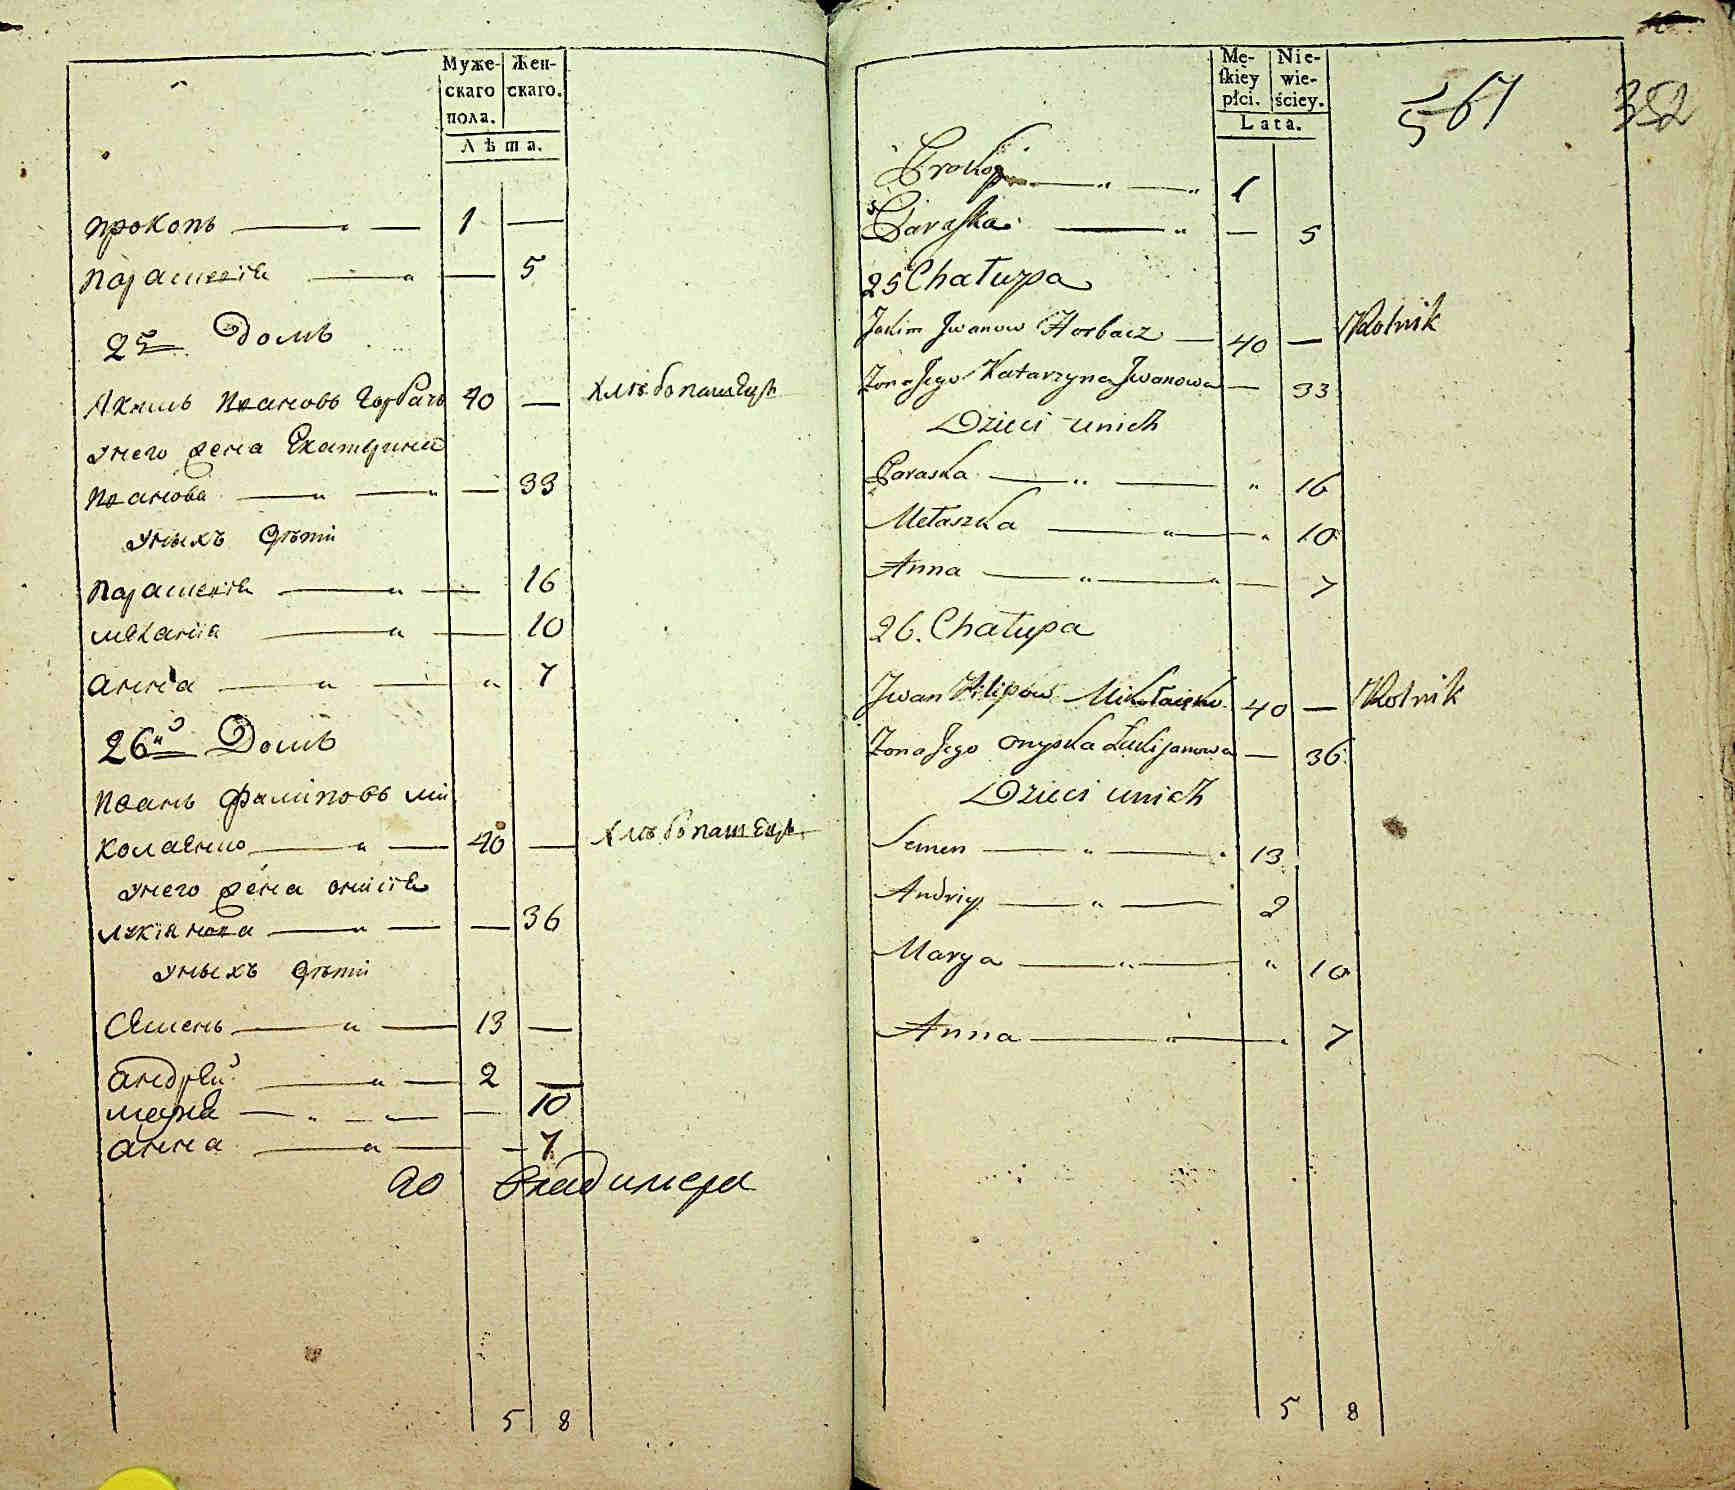 Муже- Жен-
скаго скаго.
пола.
Лѣта.
Прокопъ 1 —
Параскевiя — 5
25 Домъ
Якимъ Ивановъ Горбачъ 40 — Хлѣбопашецъ
Унего жена Екатерина
Иванова — 33
Уныхъ дѣти
Параскевiя — 16
Меланiя — 10
Анна 7
26й Домъ
Иванъ Филиповъ Ми
колаенко 40 — Хлѣбопашецъ
Унего жена Онисiя
Лукiянова — 36
Уныхъ дѣти
Семенъ 13 —
Андрей 2 —
Марiя — 10
Анна — 7
Владимера
5 8
Mę- Nie-
skiey wie-
płci. ściey.
Lata.
567 352
Prokop 1
Paraska — 5
25 Chałupa
Jakim Jwanow Horbacz — 40 — Rolnik
Żona Jego Katarzyna Jwanowa — 33
Dzieci unich
Paraska 16
Mełaszka 10
Anna — 7
26. Chałupa
Jwan Filipow 40 — Rolnik
Żona Jego Onyska Łukijanowa — 36
Dzieci unich
Semen 13
Andriy 2
Marya 10
Anna 7
5 8